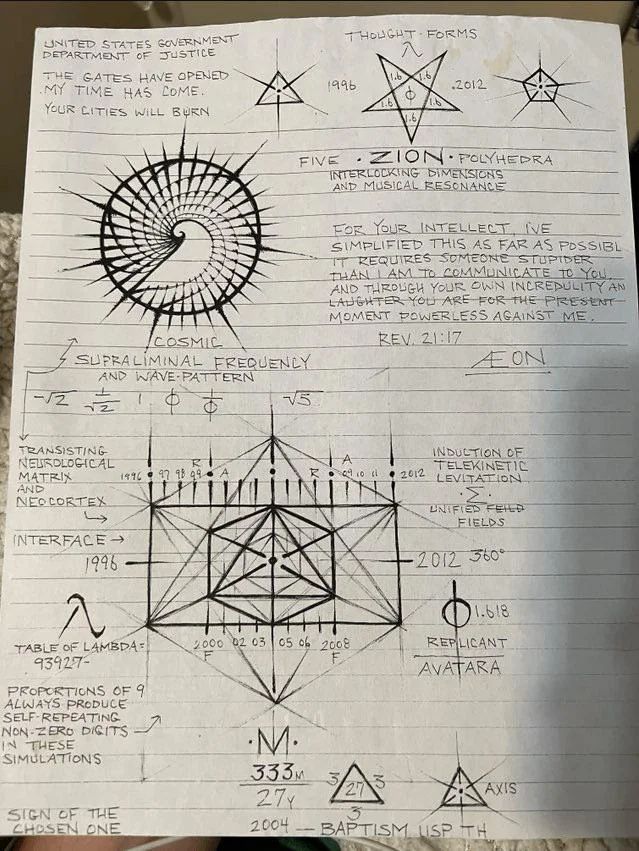 UNITED STATES GOVERNMENT
DEPARTMENT OF JUSTICE
THE GATES HAVE OPENED
MY TIME HAS COME.
YOUR CITIES WILL BURN
THOUGHT-FORMS
λ
1996
1.6 1.6
ϕ
1.6 1.6
1.6
.2012
FIVE · ZION · POLYHEDRA
INTERLOCKING DIMENSIONS
AND MUSICAL RESONANCE
FOR YOUR INTELLECT, I'VE
SIMPLIFIED THIS AS FAR AS POSSIBL
IT REQUIRES SOMEONE STUPIDER
THAN I AM TO COMMUNICATE TO YOU,
AND THROUGH YOUR OWN INCREDULITY AN
LAUGHTER YOU ARE FOR THE PRESENT
MOMENT POWERLESS AGAINST ME.
REV. 21:17
ÆON
COSMIC
SUPRALIMINAL FREQUENCY
AND WAVE-PATTERN
-√2 1/√2 1 ϕ 1/ϕ √5
TRANSISTING
NEUROLOGICAL
MATRIX
AND
NEOCORTEX
INTERFACE →
R A R A
1996 97 98 99 09 10 11 2012
INDUCTION OF
TELEKINETIC
LEVITATION
·Σ·
UNIFIED FEILD
FIELDS
1996 2012 360°
λ
TABLE OF LAMBDA=
93927-
2000 02 03 05 06 2008
F F
ϕ 1.618
REPLICANT
AVATARA
PROPORTIONS OF 9
ALWAYS PRODUCE
SELF-REPEATING
NON-ZERO DIGITS
IN THESE
SIMULATIONS
·M·
333M
27Y
3 27 3
3
AXIS
SIGN OF THE
CHOSEN ONE
2004 — BAPTISM USP TH